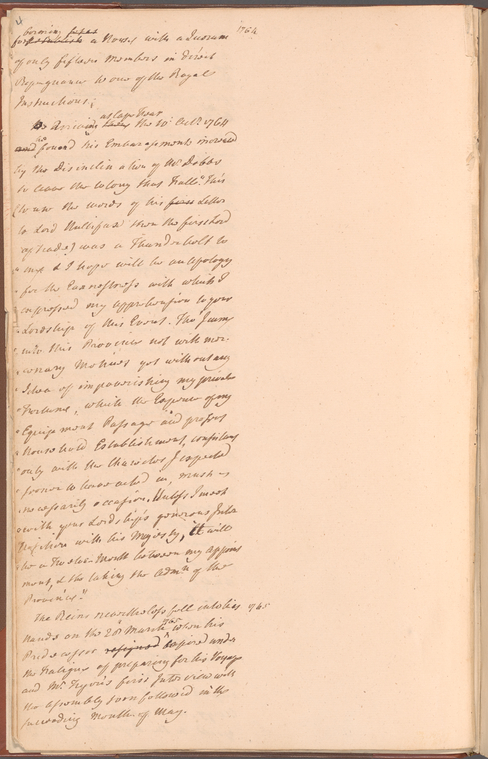 forming
a House with a Quorum 1764
of only fifteen Members in direct
Repugnance to one of the Royal
Instructions;
at Cape Fear
Arrived the 10th Octr 1764
he found his Embarrassments increased
by the Disinclination of Mr Dobbs
to leave the Colony that Fall. "This
(to use the words of his Letter
to Lord Halifax then the first Lord
of Trade) was a Thunderbolt to
" me & I hope will be an apology
" for the Earnestness with which I
" expressed my apprehension to your
" Lordship of this Event. Tho I came
" into this Province not with mer
" cenary Motives yet without any
" Idea of impoverishing my private
" Fortune, which the Expence of my
" Equipment Passage and present
" Household Establishment, consisting
" only with the Character I expected
" sooner to have acted in, must
" necessarily occasion. Unless I meet
" with your Lordship's generous Inter
position with his Majesty, it will
be a Twelve-Month between my appoint
ment, & the taking the Admn of the
Province."
The Reins nevertheless fell into his 1765
hands on the 28 March 1765 when his
Predecessor expired under
the Fatigue of preparing for his Voyage
and Mr Tryon's first Interview with
the Assembly soon followed in the
succeeding Month of May.